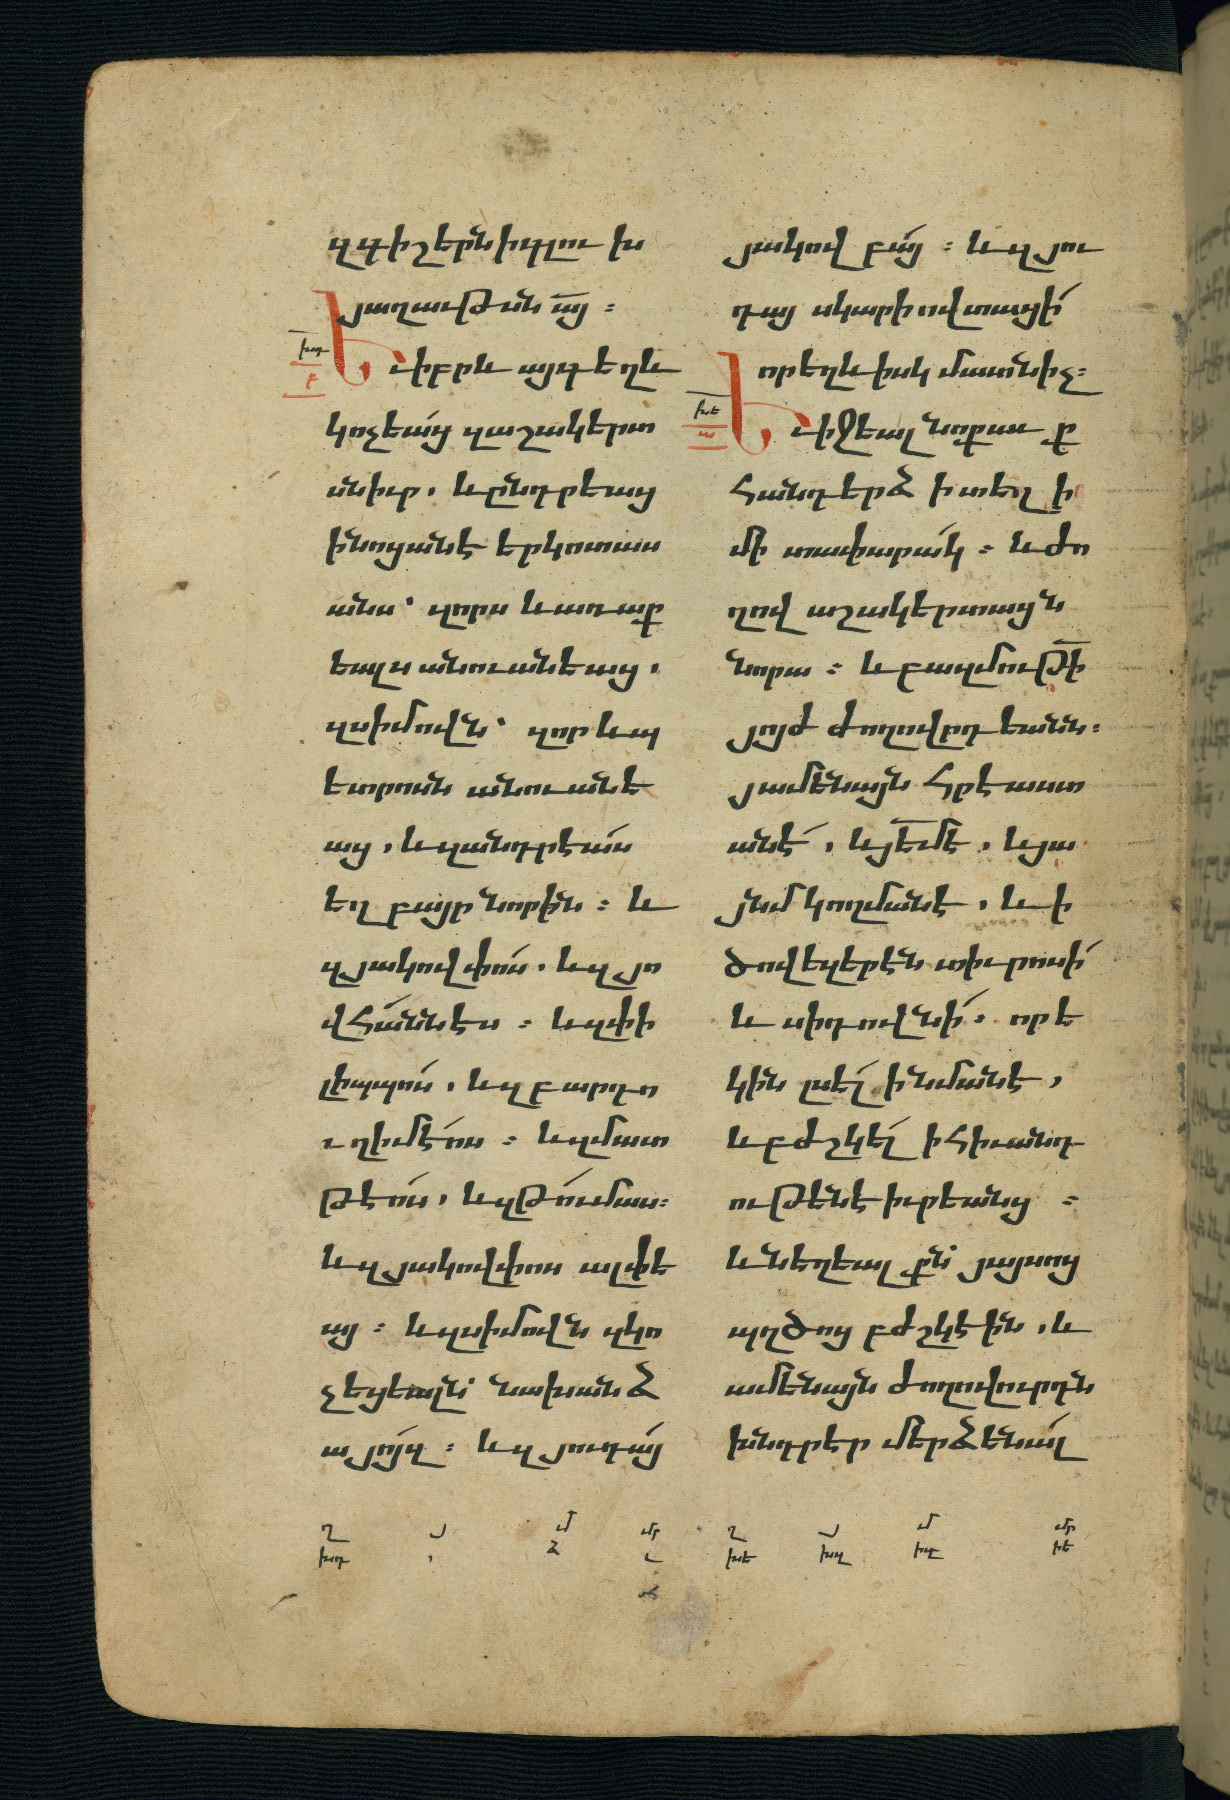 զգիշերն ի գլուխ
յաղաւթսն ա՟յ :
խդ
բ
Եւ իբրև այգ եղև
կոչեա՛ց զաշակերտ
սն իւր , և ընտրեաց
ի նոցանէ երկոտաս
անս՝ զորս և առաք
եալս անուանեաց ,
զսիմովն՝ զոր և պ
ետրոսն անուանե
աց , և զանդրէա՛ս
եղբայր նորին : և
զյակովփոս , և զյո
վհա՛ննէս : և զփի
լիպպո՛ս , և զբարդո
ւղիմէ՛ոս : և զմատ
թէո՛ս , և զթո՛ւմաս :
և զյակովփոս ալփե
այ : և զսիմովն զկո
չեցեալն՝ նախանձ
այո՛յզ : և զյուդա՛յ
յակովբա՛յ : և զյու
դայ սկարիովտացի՛
որ եղև իսկ մատնիչ :
խե
ա
Եւ իջեալ նոքաւք
հանդերձ ի տեղի
մի տափարա՛կ : և ժո
ղով աշակերտացն
նորա : և բազմութի՟
յոյժ ժողովրդեանն :
յամենայն հրէաստ
անէ՛ , և յե՟մէ , և յա
յնմ կողմանէ , և ի
ծովեզերէն տիւրոսի՛
և սիդովնի՛ . որ ե
կին լսե՛լ ի նմանէ ,
և բժշկե՛լ ի հիւանդ
ութենէ իւրեանց :
և նեղեալքն՝ յայսոց
պղծոց բժշկէին , և
ամենայն ժողովուրդն
խնդրէր մերձենա՛լ
ղ մ մր ղ մ մր
խդ ձ խե խզ